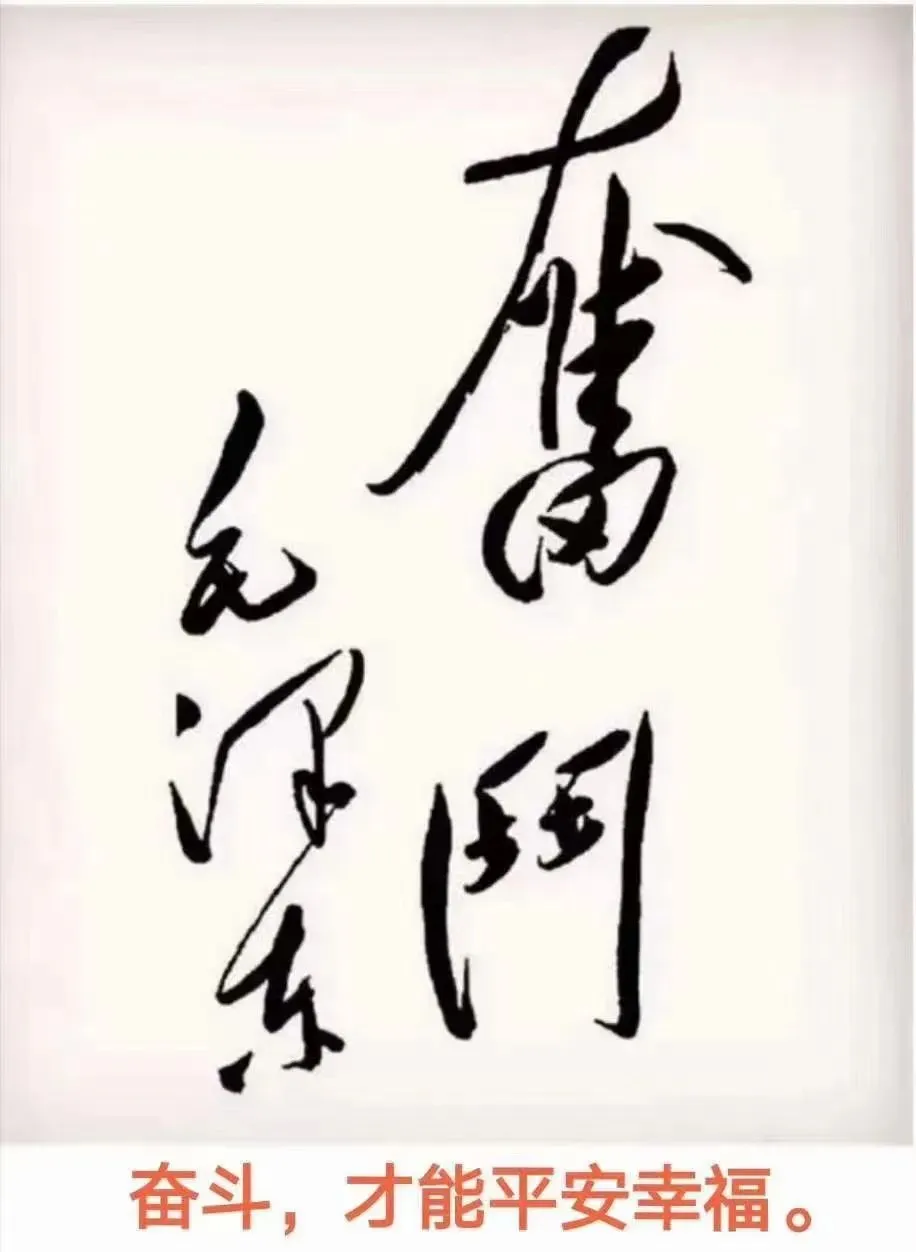 奮鬥
毛泽东
奋斗，才能平安幸福。